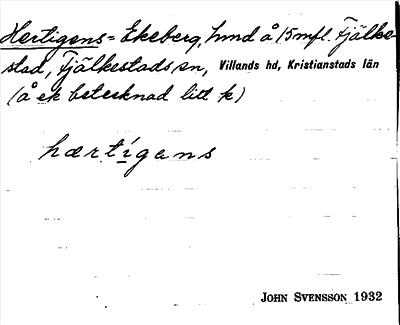 Hertigens= Ekeberg, hmd å 15 mfl. Fjälke-
stad, Fjälkestads sn, Villands hd, Kristianstads län
(å ek betecknad litt k)
hærtigans
JOHN SVENSSON 1932